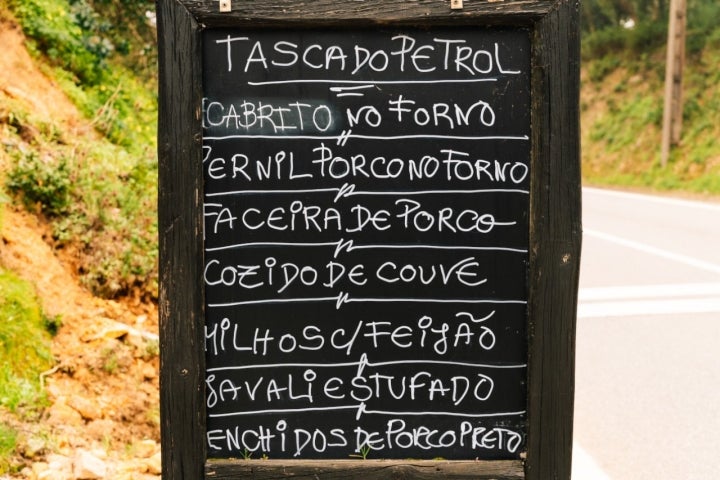 TASCA DO PETROL
CABRITO NO FORNO
PERNIL PORCO NO FORNO
FACEIRA DE PORCO
COZIDO DE COUVE
MILHOS C/ FEIJÃO
JAVALI ESTUFADO
ENCHIDOS DE PORCO PRETO